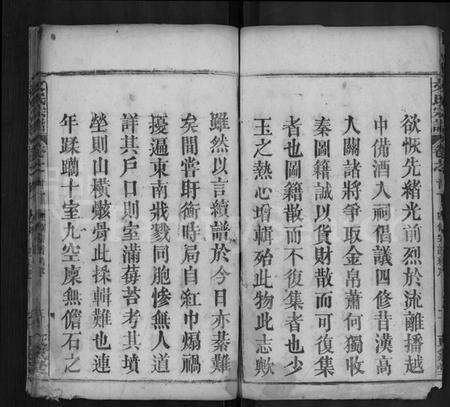 欲恢先緒光前烈於流離播越
中備酒人祠倡議四修昔漢高
入關諸將爭取金帛蕭何獨收
秦圖籍誠以貨財散而可復集
者也圖籍散而不復集者也少
玉之熱心增輯殆此物此志歟
雖然以言續譜於今日亦綦難
矣間嘗盱衡時局自紅巾煽禍
擾遍東南戕戮同胞慘無人道
詳其戶口則室滿莓苔考其墳
塋則山橫骸骨此採輯難也連
年蹂躪十室九空廩無儋石之